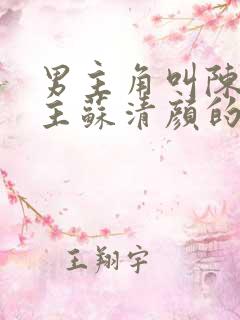 男主角叫陳
王蘇清顏的
王翔宇